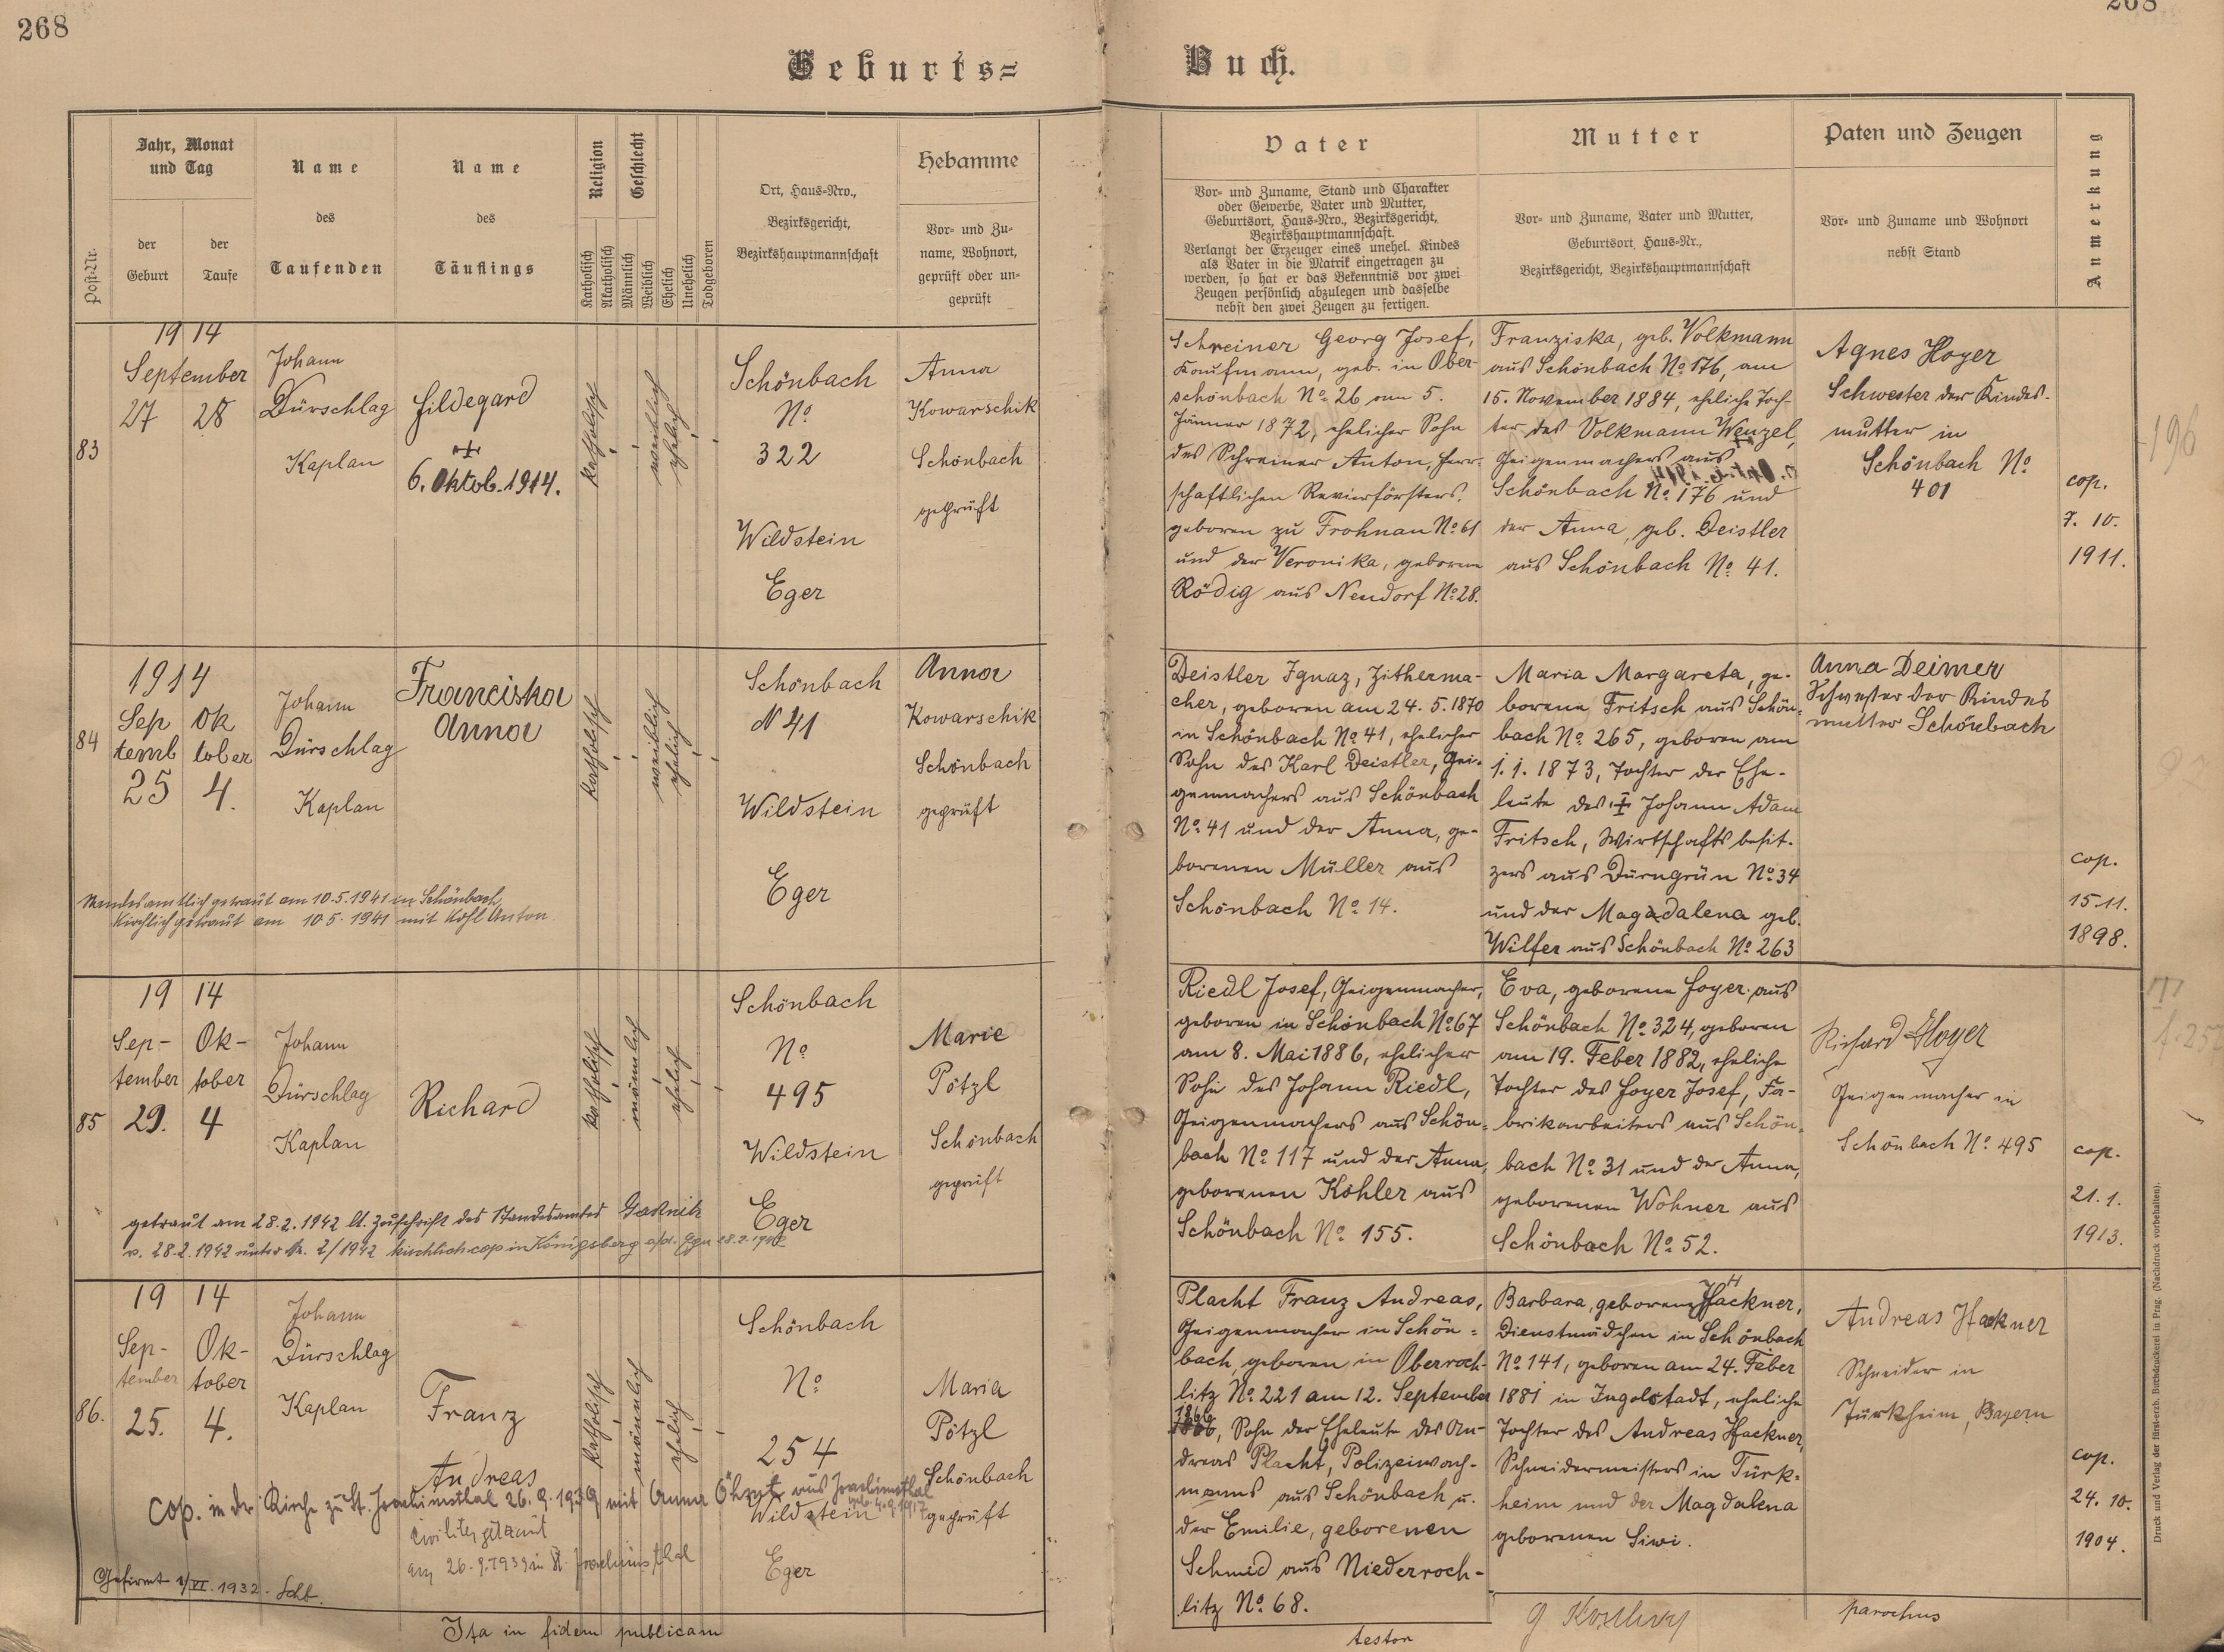 268
268
Geburts=
Buch.
Post-Nr.
Jahr, Monat
und Tag
der
Geburt
der
Taufe
Name
des
Taufenden
Name
des
Täuflings
Religion
Katholisch
Akatholisch
Geschlecht
Männlich
Weiblich
Ehelich
Unehelich
Todgeboren
Ort, Haus-Nro.,
Bezirksgericht,
Bezirkshauptmannschaft
Hebamme
Vor- und Zu-
name, Wohnort,
geprüft oder un-
geprüft
Vater
Vor- und Zuname, Stand und Charakter
oder Gewerbe, Vater und Mutter,
Geburtsort, Haus-Nro., Bezirksgericht,
Bezirkshauptmannschaft.
Verlangt der Erzeuger eines unehel. Kindes
als Vater in die Matrik eingetragen zu
werden, so hat er das Bekenntnis vor zwei
Zeugen persönlich abzulegen und dasselbe
nebst den zwei Zeugen zu fertigen.
Mutter
Vor- und Zuname, Vater und Mutter,
Geburtsort, Haus-Nr.,
Bezirksgericht, Bezirkshauptmannschaft
Paten und Zeugen
Vor- und Zuname und Wohnort
nebst Stand
Anmerkung
83
1914
September
27 28
Johann
Dürschlag
Kaplan
Hildegard
+
6. Oktob. 1914.
katholisch
weiblich
ehelich
Schönbach
No
322
Wildstein
Eger
Anna
Kowarschik
Schönbach
geprüft
Schreiner Georg Josef,
Kaufmann, geb. in Ober-
schönbach No 26 am 5.
Jänner 1872, ehelicher Sohn
des Schreiner Anton, herr-
schaftlichen Revierförsters,
geboren zu Frohnau No 61
und der Veronika, geborene
Rödig aus Neudorf No 28.
Franziska, geb. Volkmann
aus Schönbach No 176, am
15. November 1884, eheliche Toch-
ter des Volkmann Wenzel,
Geigenmachers aus
Schönbach No 176 und
der Anna, geb. Deistler
aus Schönbach No 41.
Agnes Hoyer
Schwester der Kindes-
mutter in
Schönbach No
401
cop.
7. 10.
1911.
196
84
1914
Sep Ok
temb tober
25 4.
Johann
Dürschlag
Kaplan
Franciska
Anna
katholisch
weiblich
ehelich
Schönbach
N 41
Wildstein
Eger
Anna
Kowarschik
Schönbach
geprüft
Standesamtlich getraut am 10.5.1941 in Schönbach,
Kirchlich getraut am 10.5.1941 mit Kohl Anton
Deistler Ignaz, Zitherma-
cher, geboren am 24. 5. 1870
in Schönbach No 41, ehelicher
Sohn des Karl Deistler, Gei-
genmachers aus Schönbach
No 41 und der Anna, ge-
borenen Müller aus
Schönbach No 14.
Maria Margareta, ge-
borene Fritsch aus Schön-
bach No 265, geboren am
1. 1. 1873, Tochter der Ehe-
leute des + Johann Adam
Fritsch, Wirtschaftsbesit-
zers aus Dürngrün No 34
und der Magadalena geb.
Wilfer aus Schönbach No 263
Anna Deimer
Schwester der Kindes
mutter Schönbach
cop.
15. 11.
1898.
85
19 14
Sep- Ok-
tember tober
29. 4
Johann
Dürschlag
Kaplan
Richard
katholisch
männlich
ehelich
Schönbach
No
495
Wildstein
Eger
Marie
Pötzl
Schönbach
geprüft
getraut am 28.2.1942 lt. Zuschrift des Standesamtes
v. 28.2.1942 unter Nr. 2/1942 kirchlich cop in Königsberg a/d. Eger 28.2.1942
Riedl Josef, Geigenmacher,
geboren in Schönbach No 67
am 8. Mai 1886, ehelicher
Sohn des Johann Riedl,
Geigenmachers aus Schön-
bach No 117 und der Anna,
geborenen Köhler aus
Schönbach No 155.
Eva, geborene Hoyer aus
Schönbach No 324, geboren
am 19. Feber 1882, eheliche
Tochter des Hoyer Josef, Fa-
brikarbeiters aus Schön-
bach No 31 und der Anna,
geborenen Wohner aus
Schönbach No 52.
Richard Hoyer
Geigenmacher in
Schönbach No 495
cop.
21. 1.
1913.
86.
19 14
Sep- Ok-
tember tober
25. 4.
Johann
Dürschlag
Kaplan
Franz
Andreas
katholisch
männlich
ehelich
Schönbach
No
254
Wildstein
Eger
Maria
Pötzl
Schönbach
geprüft
cop. in der Kirche zu St. Joachimsthal 26.9.1939 mit Anna aus Joachimsthal
geb. 4.9.1917
civiliter getraut
am 26.9.1939 in St. Joachimsthal
Gefirmt 1/VI. 1932.
Placht Franz Andreas,
Geigenmacher in Schön-
bach, geboren in Oberroch-
litz No 221 am 12. September
Sohn der Eheleute des An-
dreas Placht, Polizeiwach-
manns aus Schönbach u.
der Emilie, geborenen
Schmid aus Niederroch-
litz No 68.
Barbara, geborene Hackner,
Dienstmädchen in Schönbach
No 141, geboren am 24. Feber
1881 in Ingolstadt, eheliche
Tochter des Andreas Hackner,
Schneidermeisters in Türk-
heim und der Magdalena
geborenen Siwi.
Andreas Hackner
Schneider in
Türkheim, Bayern
cop.
24. 10.
1904.
Ita in fidem publicam
testor
parochus
Druck und Verlag der fürst-erzb. Buchdruckerei in Prag. (Nachdruck vorbehalten).